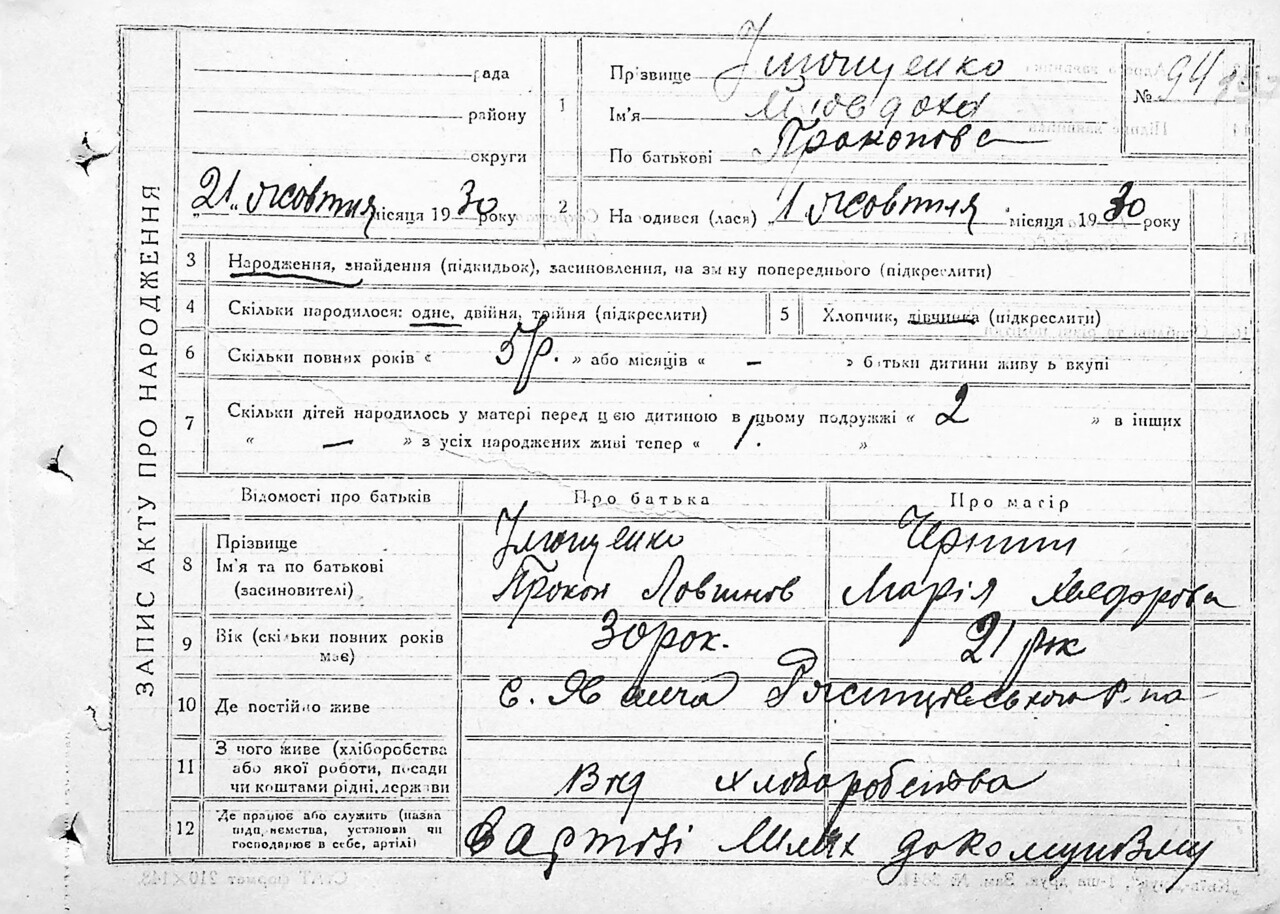 ЗАПИС АКТУ ПРО НАРОДЖЕННЯ
рада
району
округи
„21“ жовтня місяця 1930 року
1 Прізвище
Ім'я Мовдоха
По батькові Прокопова
№ 94
2 Народився (лася) „1 жовтня місяця 1930 року
3 Народження, знайдення (підкидьок), засиновлення, на зміну попереднього (підкреслити)
4 Скільки народилося: одне, двійня, тройня (підкреслити)
5 Хлопчик, дівчинка (підкреслити)
6 Скільки повних років « 5 р. » або місяців « — » батьки дитини живуть вкупі
7 Скільки дітей народилось у матері перед цією дитиною в цьому подружжі « 2 » в інших
« — » з усіх народжених живі тепер « 1. »
Відомості про батьків Про батька Про матір
8 Прізвище
Ім'я та по батькові
(засиновителі)
Прокоп Марія Хведорова
9 Вік (скільки повних років має) 30 рок. 21 рок
10 Де постійно живе с. р-на
11 З чого живе (хліборобства
або якої роботи, посади
чи коштами рідні, держави
Від хліборобства
12 Де працює або служить (назва
підприємства, установи чи
господарює в себе, артілі)
В артілі Шлях до комунізму
СТАТ формат 210×148.